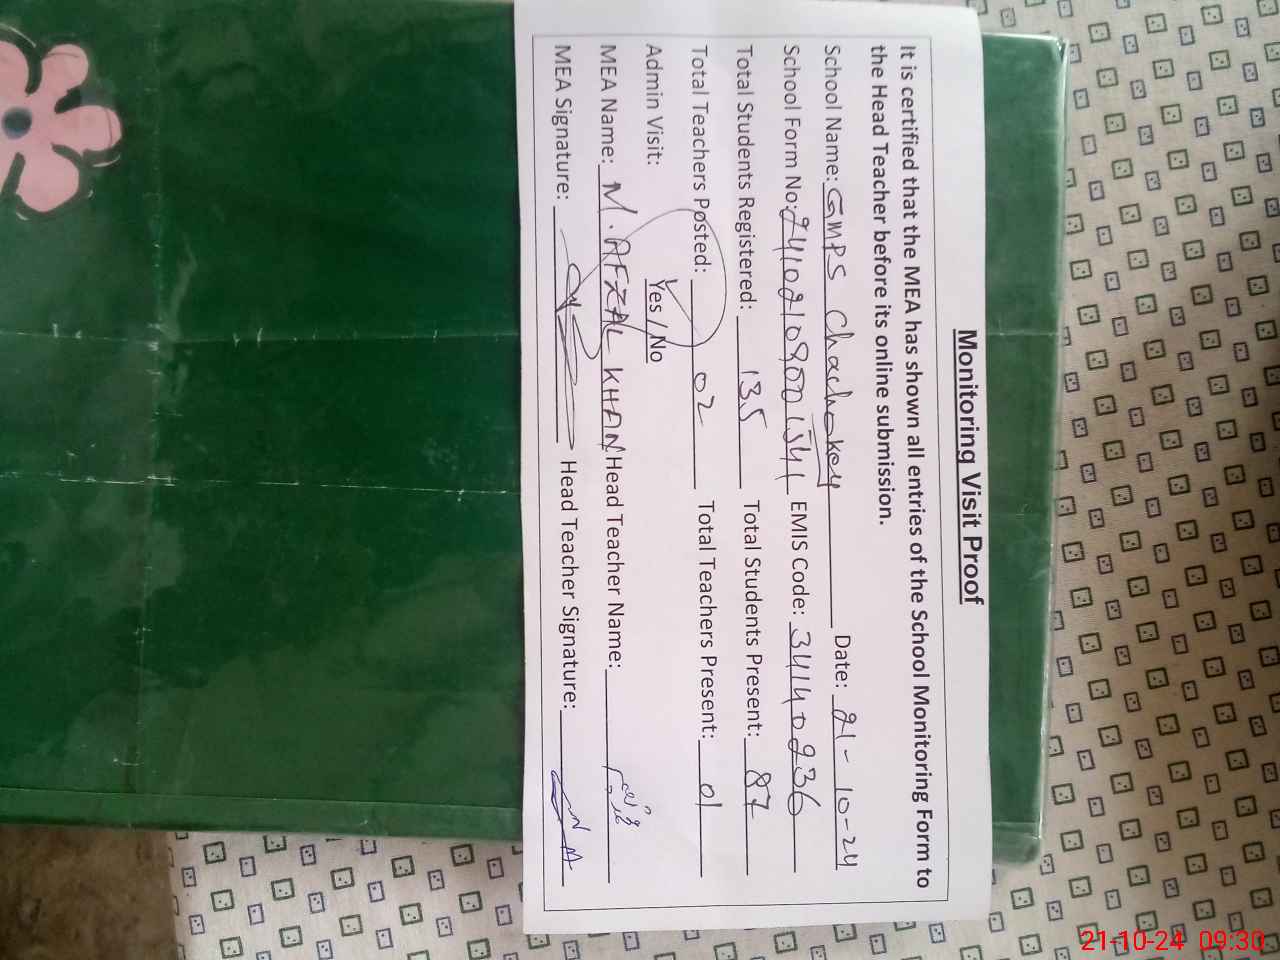 Monitoring Visit Proof
It is certified that the MEA has shown all entries of the School Monitoring Form to
the Head Teacher before its online submission.
School Name: GMPS Chachakey Date: 21-10-24
School Form No: 24102108001541 EMIS Code: 34140236
Total Students Registered: 135 Total Students Present: 87
Total Teachers Posted: 02 Total Teachers Present: 01
Admin Visit: Yes / No
MEA Name: M. AFZAL KHAN Head Teacher Name:
MEA Signature: Head Teacher Signature:
21-10-24 09:30